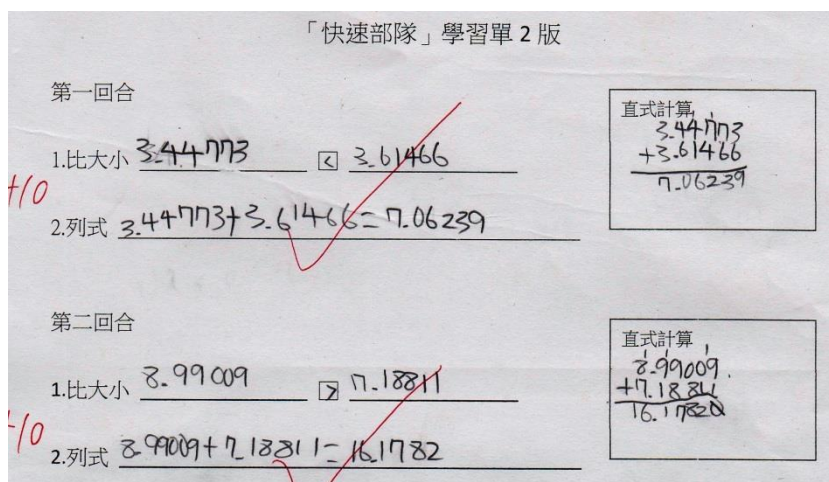 「快速部隊」學習單 2 版
第一回合
1.比大小 3.44773 < 3.61466
+10
2.列式 3.44773+3.61466=7.06239
直式計算
3.44773
+3.61466
7.06239
第二回合
1.比大小 8.99009 > 7.18811
+10
2.列式 8.99009+7.18811=16.1782
直式計算
8.99009
+7.18811
16.17820